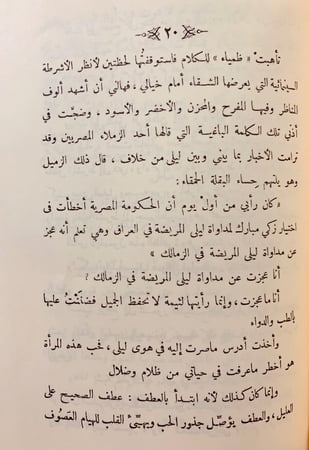 ٢٠
تأهبت « ظمياء » للكلام فاستوقفتُها لحظتين لأنظر الأشرطة
السينمائية التي يعرضها الشقاء أمام خيالي ، فهالني أن أشهد ألوف
المناظر وفيها المفرح والمحزن والأخضر والأسود ، وضجت في
أذني تلك الكلمة الباغية التي قالها أحد الزملاء المصريين وقد
ترامت الأخبار بما بيني وبين ليلى من خلاف ، قال ذلك الزميل
وهو يلتهم حِساء البقلة الحمقاء :
«كان رأيي من أول يوم أن الحكومة المصرية أخطأت في
اختيار زكي مبارك لمداواة ليلى المريضة في العراق وهي تعلم أنه عجز
عن مداواة ليلى المريضة في الزمالك »
أنا عجزت عن مداواة ليلى المريضة في الزمالك ؟
أنا ما عجزت، وإنما رأيتها لئيمة لا تحفظ الجميل فضنَنْتُ عليها
بالطب والدواء
وأخذت أدرس ما صرت إليه في هوى ليلى، فحب هذه المرأة
هو أخطر ما عرفت في حياتي من ظلام وضلال
وإنما كان كذلك لأنه ابتدأ بالعطف : عطف الصحيح على
العليل، والعطف يؤصّل جذور الحب ويهيّئ القلب للهيام العَصُوف